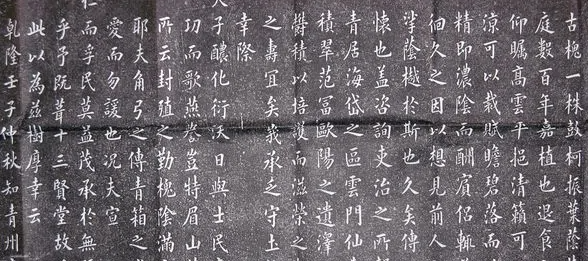 古槐一株鼓柯振葉蔭
庭數百年嘉植也退食
仰矚髙雲平挹清籟可
涼可以裁賦瞻碧落而
精即濃陰而酬賓侶輒
徊久之因以想見前人
挲蔭樾於斯也久矣傳
懷也盖咨詢吏治之所
青居海岱之區雲門仙
積翠范冨歐陽之遺澤
欝積以培護而滋榮之
之壽宜矣我承乏守土
幸際
子醲化衍沃日與士民
㓛而歌燕譽豈特眉山
所云封殖之勤槐蔭滿
耶夫角弓之傳青箱之
愛而勿諼也况夫宣
仁而孚民莫益茂承於無
乎予既葺十三賢堂故
此以為兹樹摩幸云
乾隆壬子仲秋知青州